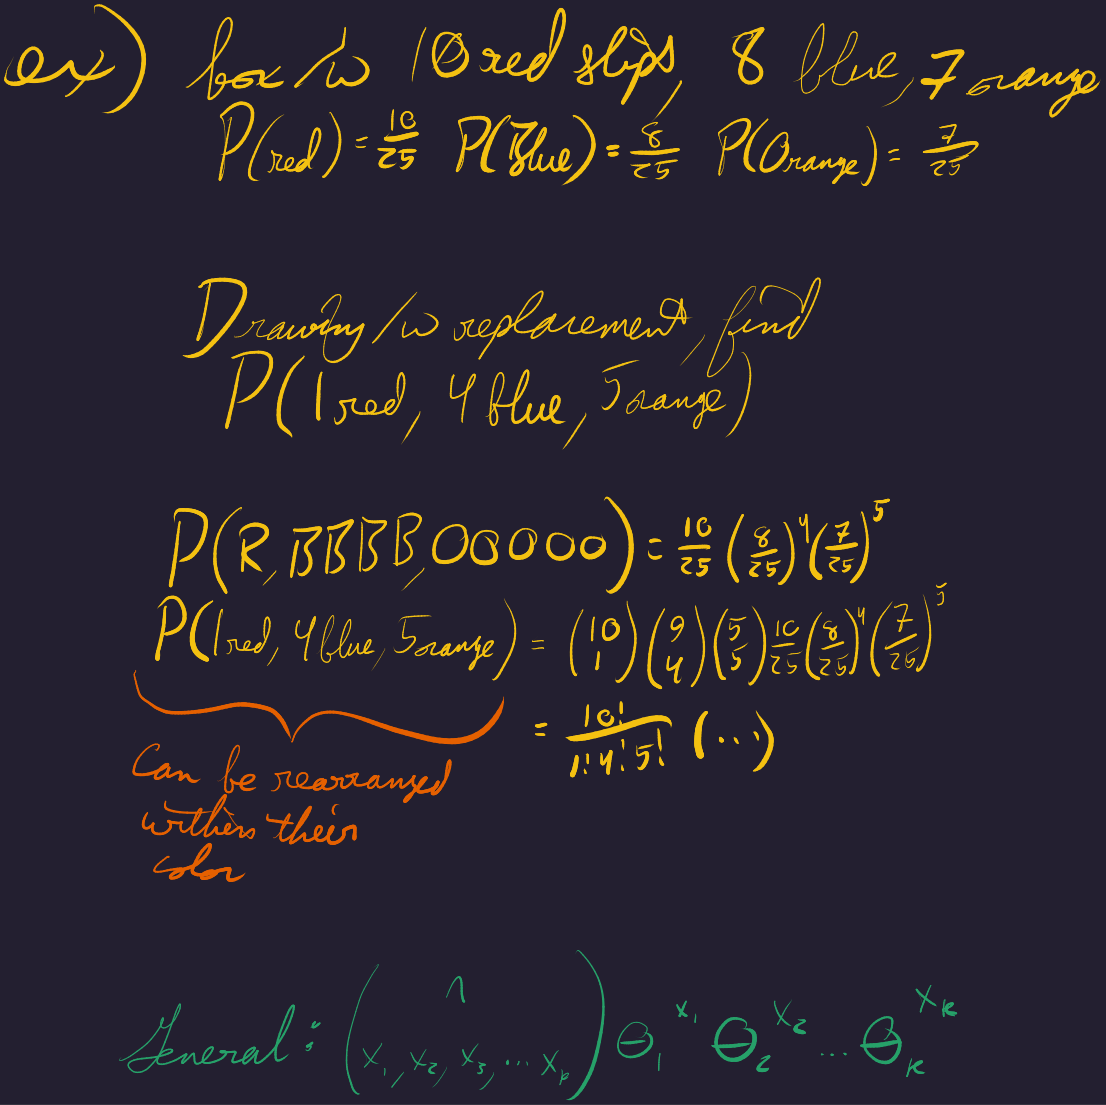 ex) box /w 10 red slips, 8 blue, 7 orange
P(red) = 10/25 P(Blue) = 8/25 P(Orange) = 7/25
Drawing /w replacement, find
P(1 red, 4 blue, 5 orange)
P(R, BBBB, OOOOO) = 10/25 (8/25)^4 (7/25)^5
P(1 red, 4 blue, 5 orange) = (10 1)(9 4)(5 5) 10/25 (8/25)^4 (7/25)^5
= 10!/1!4!5! (...)
Can be rearranged
within their
color
General: (n x₁, x₂, x₃, ... xₖ) θ₁^x₁ θ₂^x₂ ... θₖ^xₖ